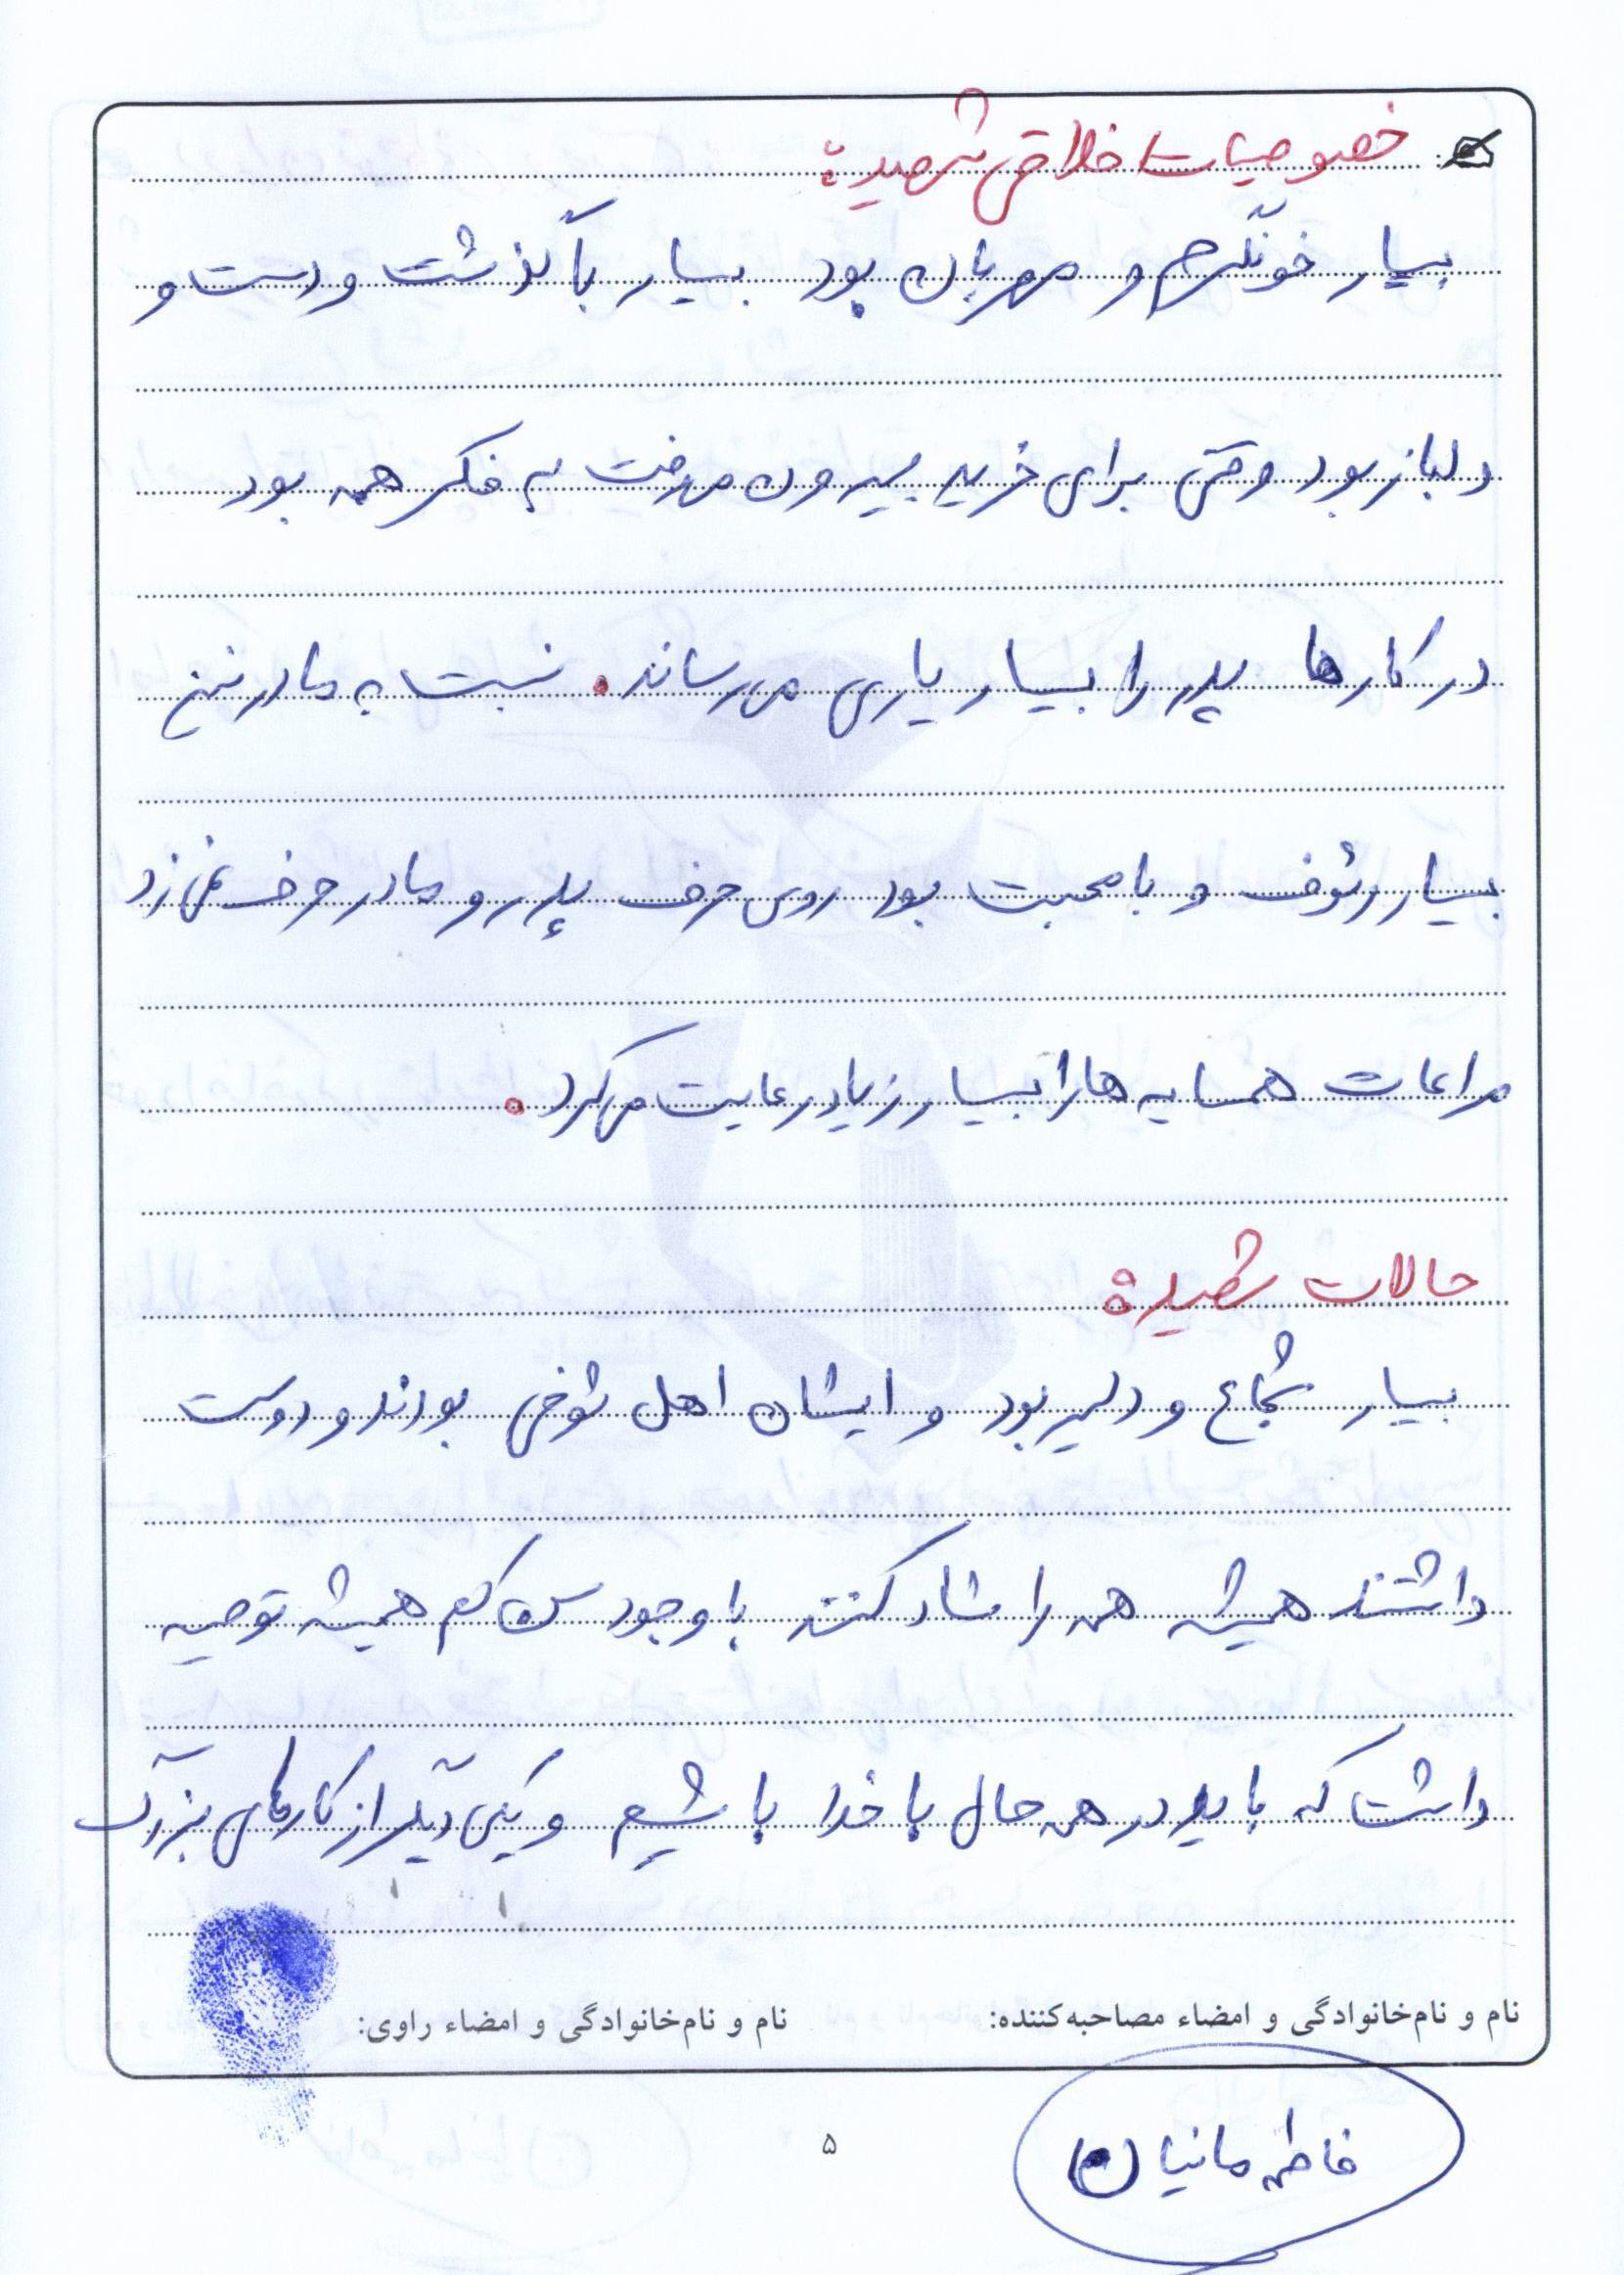 خصوصیات اخلاقی شهید:
بسیار خونگرم و مهربان بود بسیار با گذشت و دست و
دلباز بود وقتی برای خرید بیرون میرفت به فکر همه بود
در کارها پدر را بسیار یاری می رساند. نسبت به مادر نیز
بسیار رئوف و با محبت بود روی حرف پدر و مادر حرف نمی زد
مراعات همسایه ها را بسیار زیاد رعایت می کرد.
حالات شهید:
بسیار شجاع و دلیر بود و ایشان اهل شوخی بودند و دوست
داشتند همیشه همه را شاد کنند با وجود سن کم همیشه توصیه
داشت که باید در همه حال با خدا باشیم و یکی دیگر از کارهای بزرگ
نام و نام‌خانوادگی و امضاء مصاحبه‌کننده:
نام و نام‌خانوادگی و امضاء راوی:
فاطمه مانیان
۵